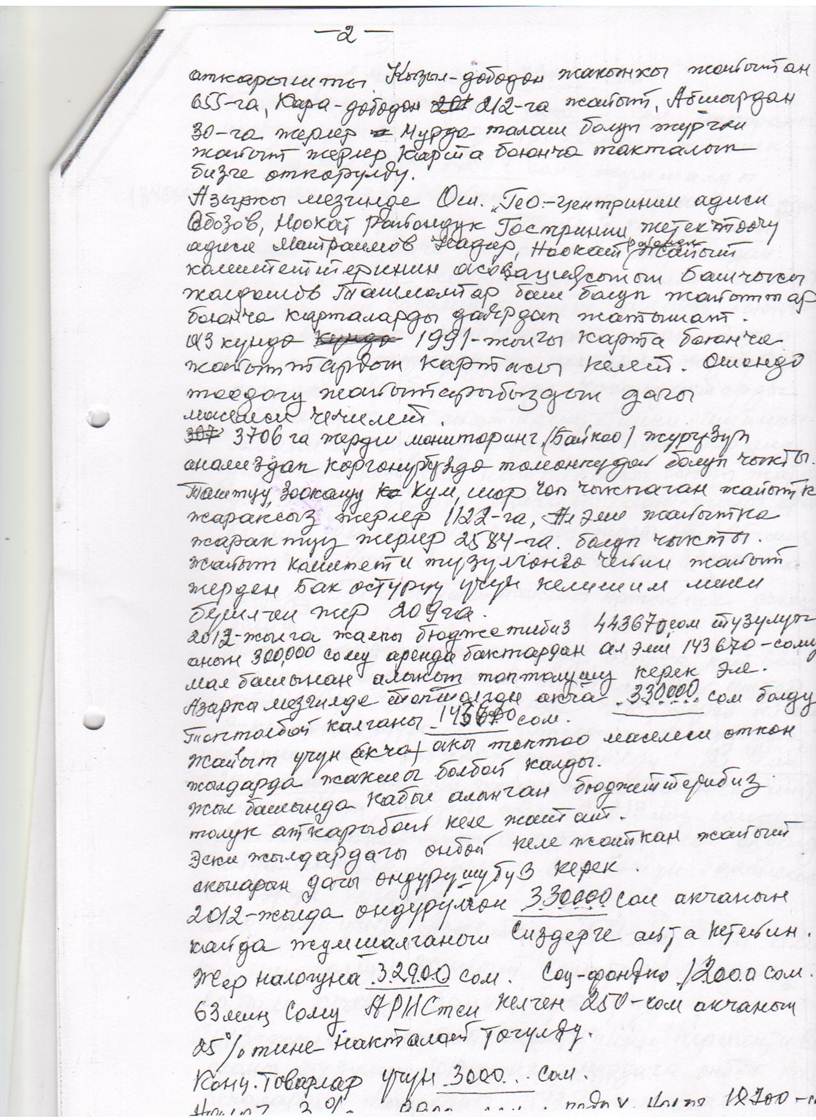 —2—
аткарышты. Кызыл-дободон жакынкы жайыттан
655-га, Кара-дободон 212-га жайыт, Абшырдан
30-га жерлер Мурда талаш болуп жүргөн
жайыт жерлер карта боюнча такталып
бизге откорулду.
Азыркы мезгилде Ош. "Гео.-центринин адиси
Обозов, Ноокат Райондук Госрегинин жетектоочу
адиси Матраимов Кадыр, Ноокат райондук жайыт
комитеттеринин асоциациясынын башчысы
жолдошов Ташмамтар баш болуп жайыттар
боюнча карталарды даярдап жатышат.
Аз кундо 1991-жылгы карта боюнча
жайыттардын картасы келет. Ошондо
тоодогу жайыттарыбыздын дагы
маселеси чечилет.
3706 га жерди мониторинг (Байкоо) жургузуп
анализдап коргонубузда томонкудой болуп чыкты.
Таштуу, зоокалуу кум, шор чоп чыкпаган жайытка
жараксыз жерлер 1122-га, Ал эми жайытка
жарактуу жерлер 2584-га. болуп чыкты.
жайыт комитети тузулгонго чейин жайыт
жерден Бак остуруу учун келишим менен
берилген жер 209 га.
2012-жылга жалпы бюджетибиз 443670 сом тузулуп
анын 300,000 сому аренда бактардан ал эми 143670-сому
мал башынан алынып топтолушу керек эле.
Азыркы мезгилде топтолгон акча 330000 сом болду
Топтолбой калганы сом.
Жайыт учун (акча) акы топтоо маселеси откон
жылдарда жакшы болбой калды.
жыл башында кабыл алынган бюджеттерибиз
толук аткарылбай келе жатат.
Эски жылдардагы онбой келе жаткан жайыт
акыларын дагы ондурушубуз керек.
2012-жылда ондурулгон 330000 сом акчанын
кайда жумшалганын Сиздерге айта кетейин.
Жер налогуна 32900 сом. Соц-фондко 12000 сом.
63 миң сому АРИСтен келген 250-сом акчанын
25% тине накталай тогулду.
Канц. товарлар учун 3000 сом.